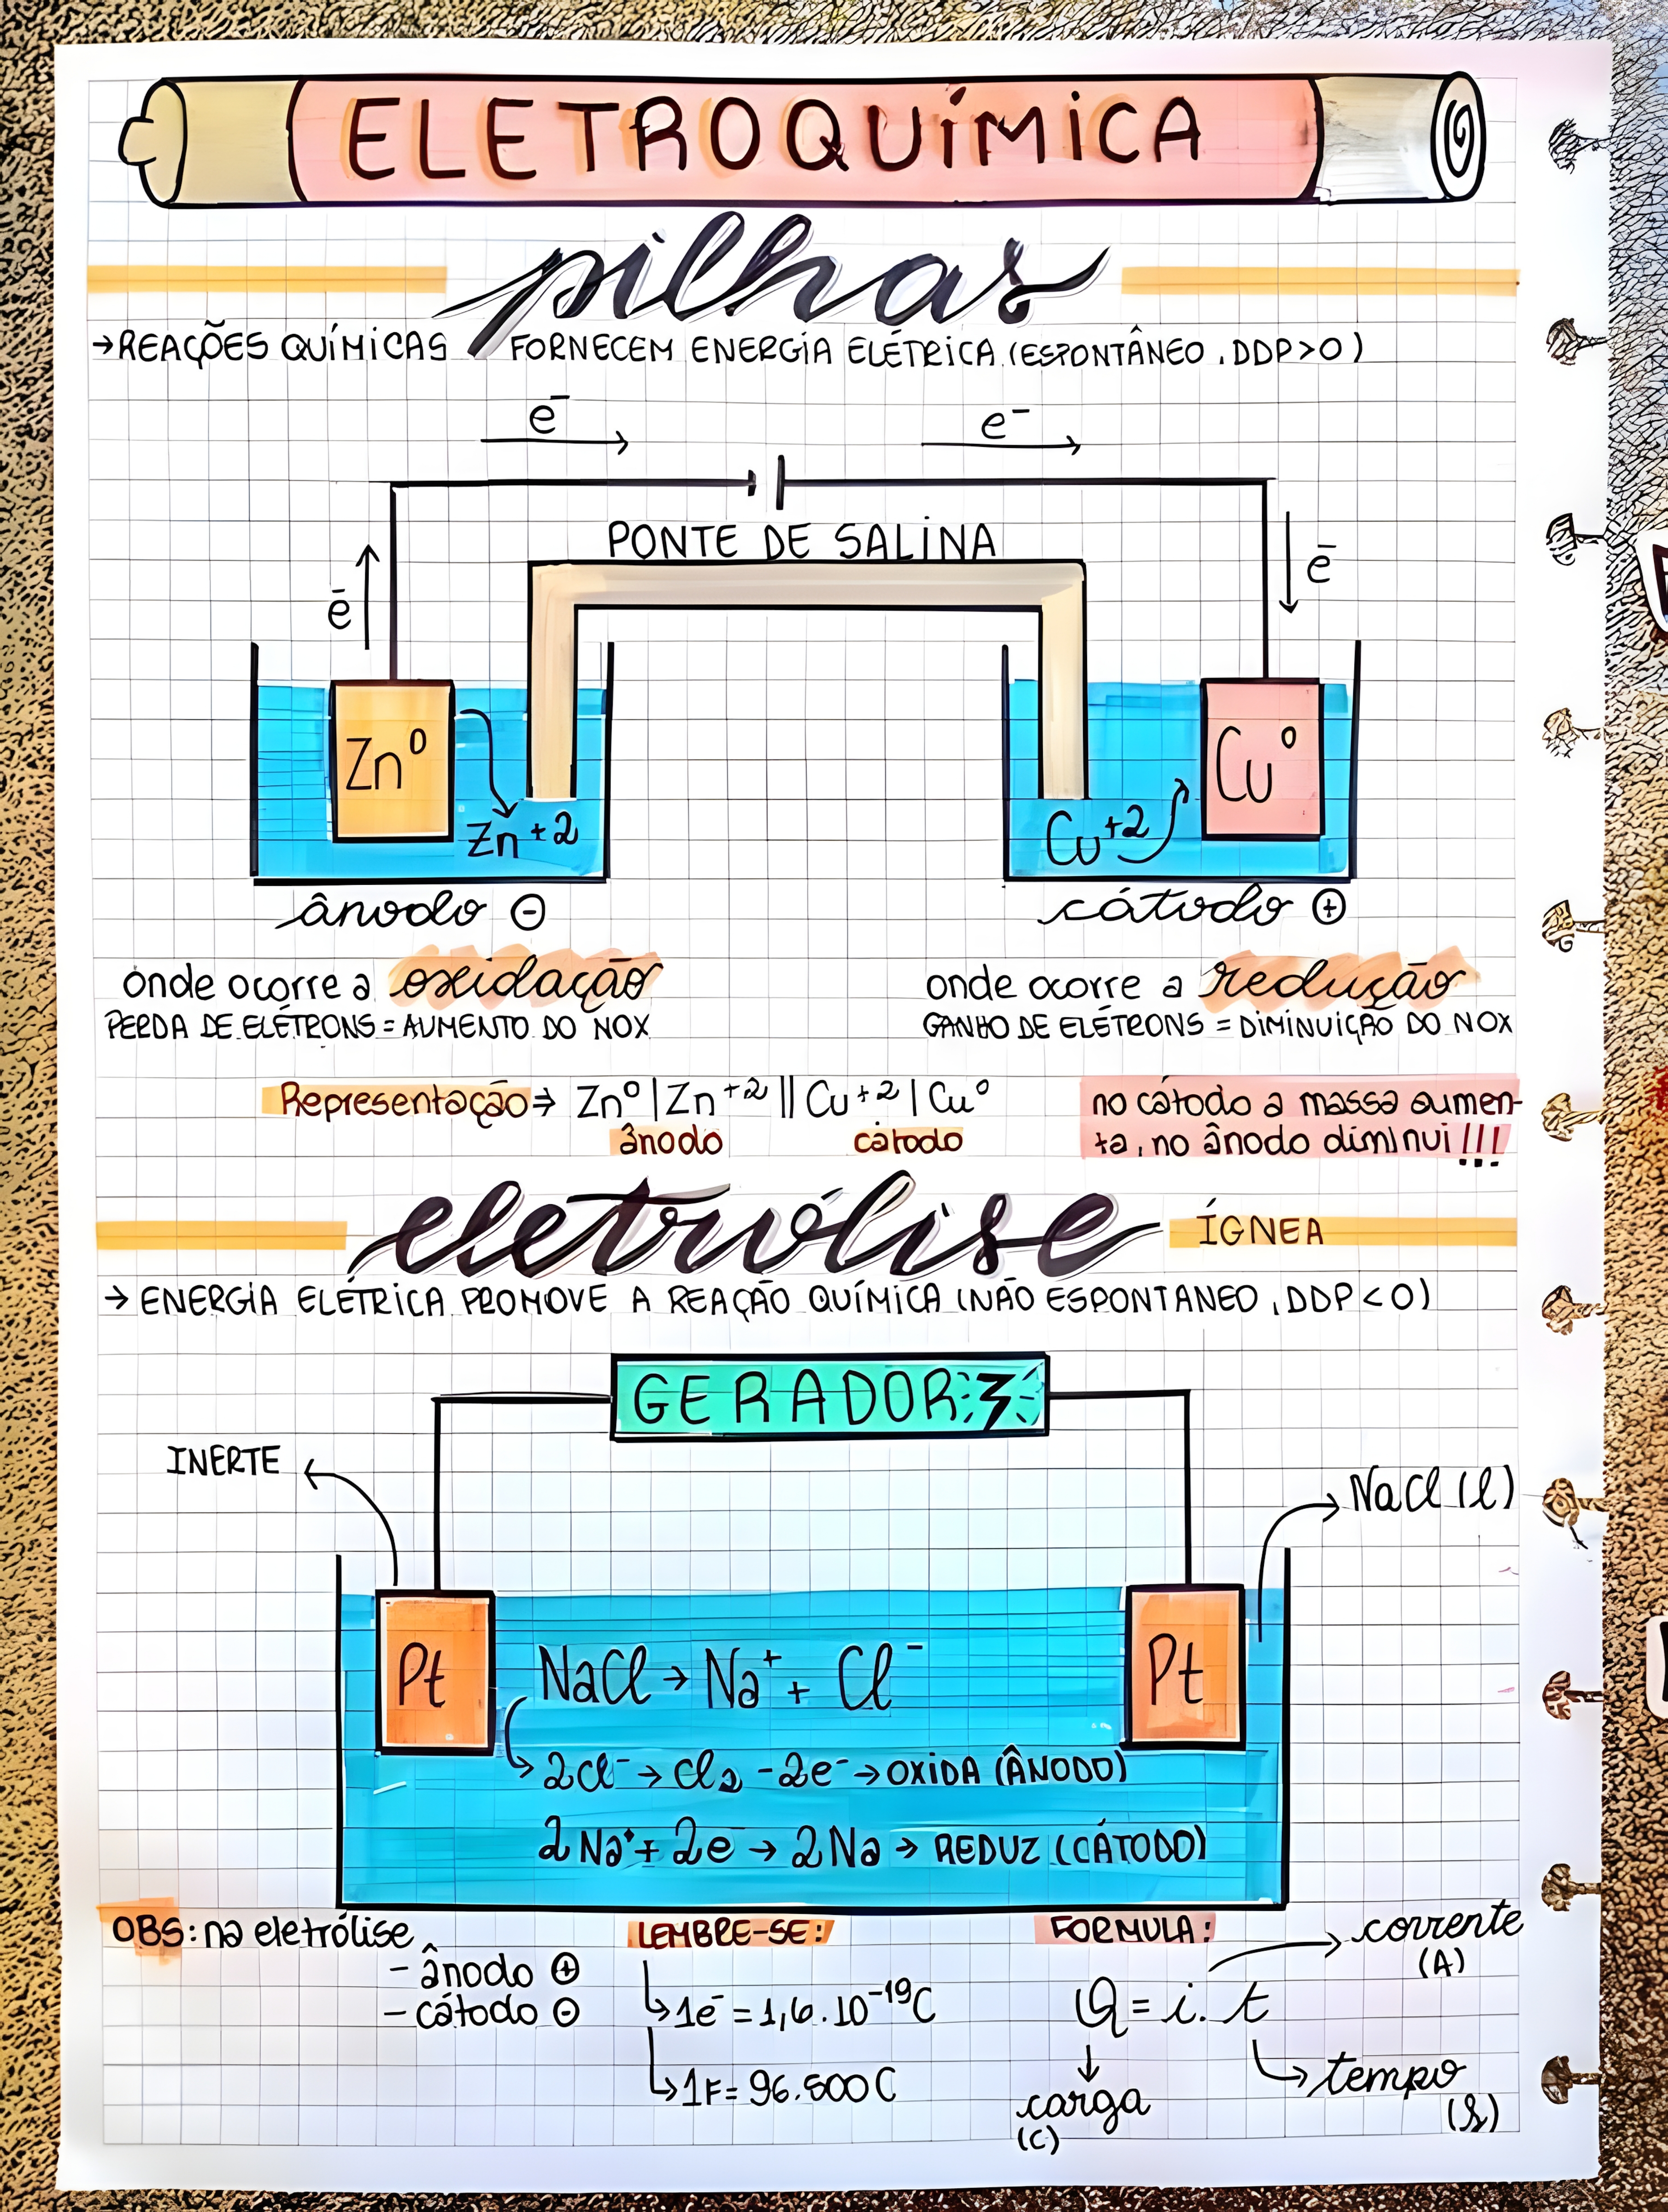 ELETROQUÍMICA
pilhas
→REAÇÕES QUÍMICAS FORNECEM ENERGIA ELÉTRICA (ESPONTÂNEO, DDP>0)
e⁻ e⁻
PONTE DE SALINA
e⁻ e⁻
Zn⁰ Cu⁰
Zn⁺² Cu⁺²
ânodo ⊖ cátodo ⊕
onde ocorre a oxidação onde ocorre a redução
PERDA DE ELÉTRONS = AUMENTO DO NOX GANHO DE ELÉTRONS = DIMINUIÇÃO DO NOX
Representação ⇒ Zn⁰ | Zn⁺² || Cu⁺² | Cu⁰ no cátodo a massa aumen-
ânodo cátodo ta, no ânodo diminui!!!
eletrólise ÍGNEA
→ ENERGIA ELÉTRICA PROMOVE A REAÇÃO QUÍMICA (NÃO ESPONTANEO, DDP<0)
GERADOR
INERTE NaCl (l)
Pt NaCl → Na⁺ + Cl⁻ Pt
2Cl⁻ → Cl₂ -2e⁻ → OXIDA (ÂNODO)
2Na⁺ + 2e⁻ → 2Na → REDUZ (CÁTODO)
OBS: na eletrólise LEMBRE-SE: FORMULA: corrente
- ânodo ⊕ (A)
- cátodo ⊖ 1e⁻ = 1,6.10⁻¹⁹C Q = i. t
1F = 96.500C tempo
carga (s)
(C)